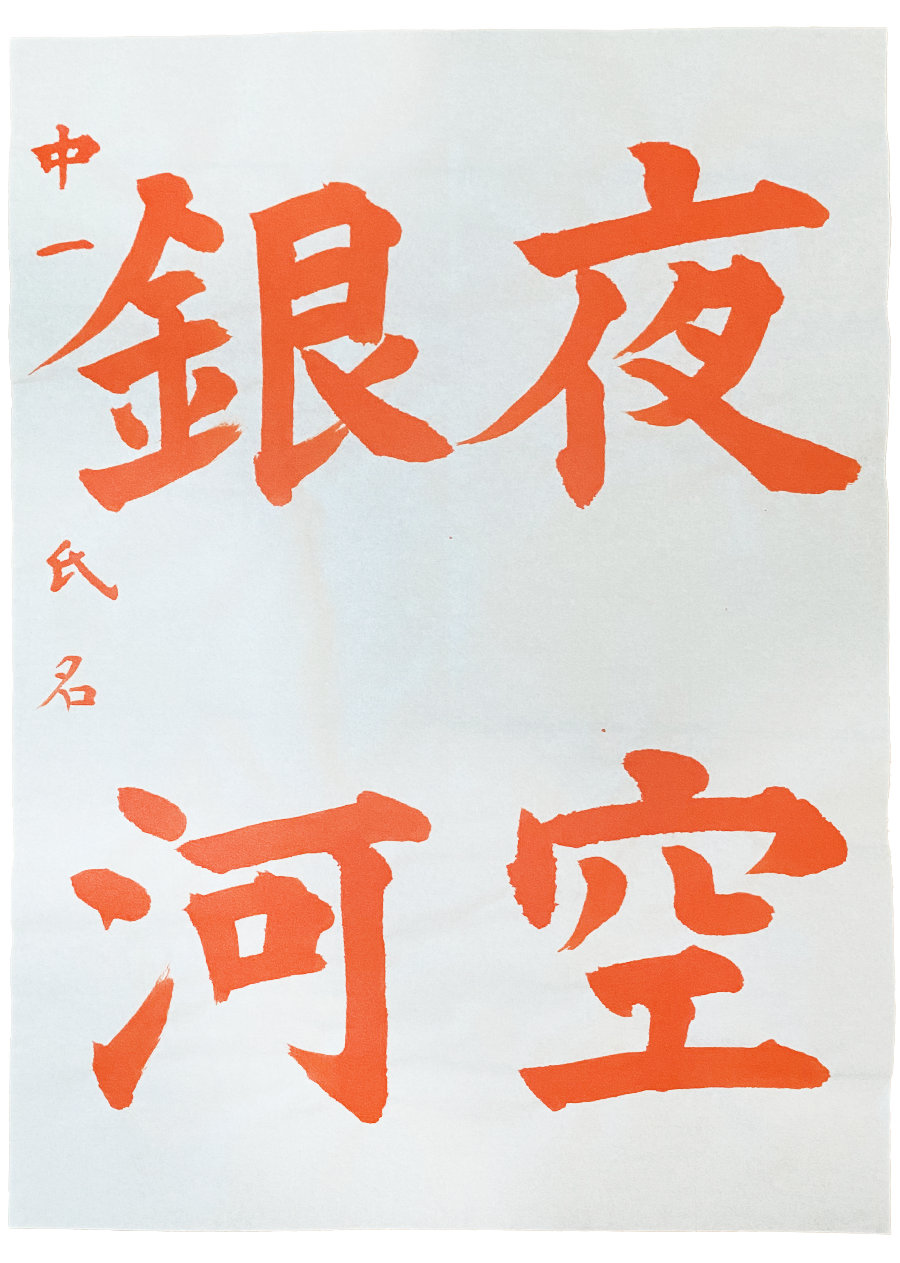 夜空
銀河
中一 氏名